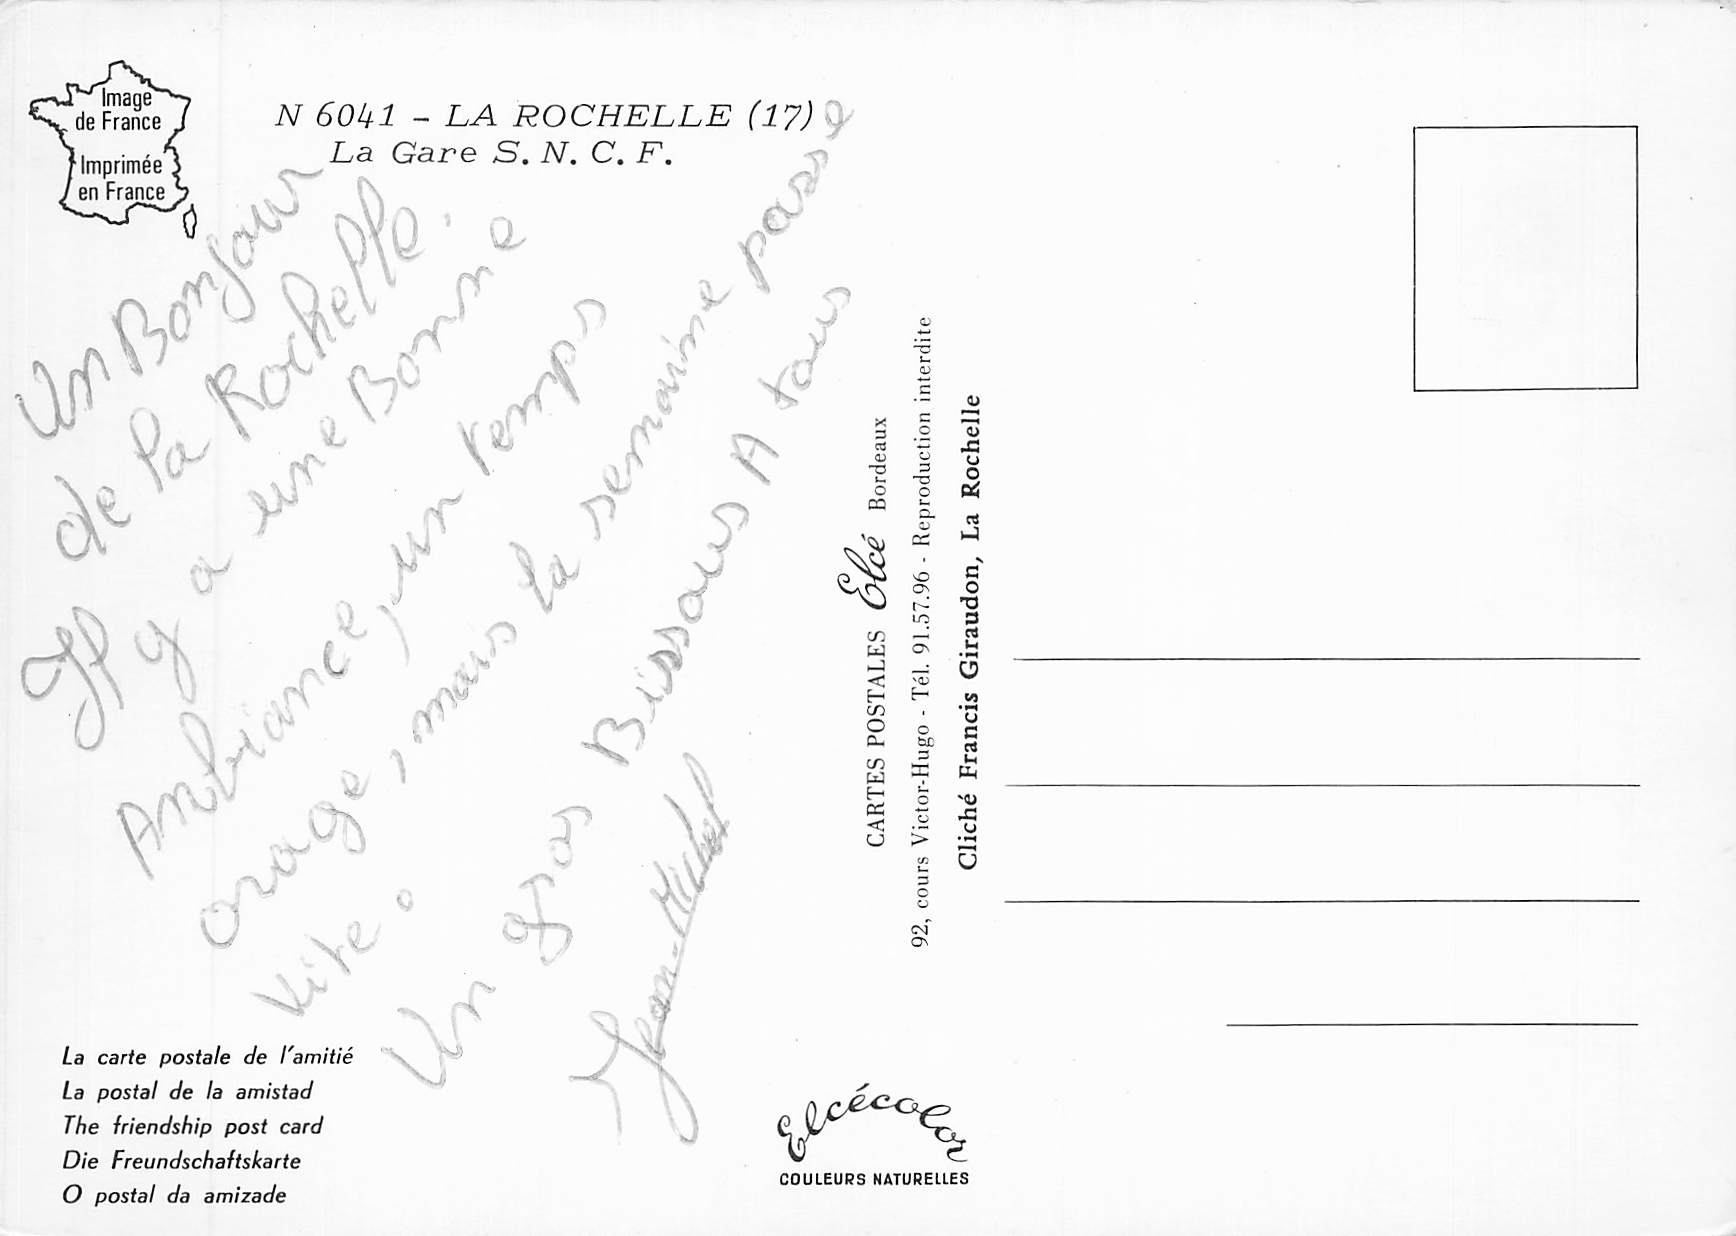 Image
de France
Imprimée
en France
N 6041 - LA ROCHELLE (17)
La Gare S. N. C. F.
Un Bonjour
de la Rochelle.
Il y a une Bonne
Ambiance, un temps
orage, mais la semaine passe
vite.
Un gros Bissous A tous
Jean-Michel
La carte postale de l'amitié
La postal de la amistad
The friendship post card
Die Freundschaftskarte
O postal da amizade
CARTES POSTALES Elcé Bordeaux
92, cours Victor-Hugo - Tél. 91.57.96 - Reproduction interdite
Cliché Francis Giraudon, La Rochelle
Elcécolor
COULEURS NATURELLES